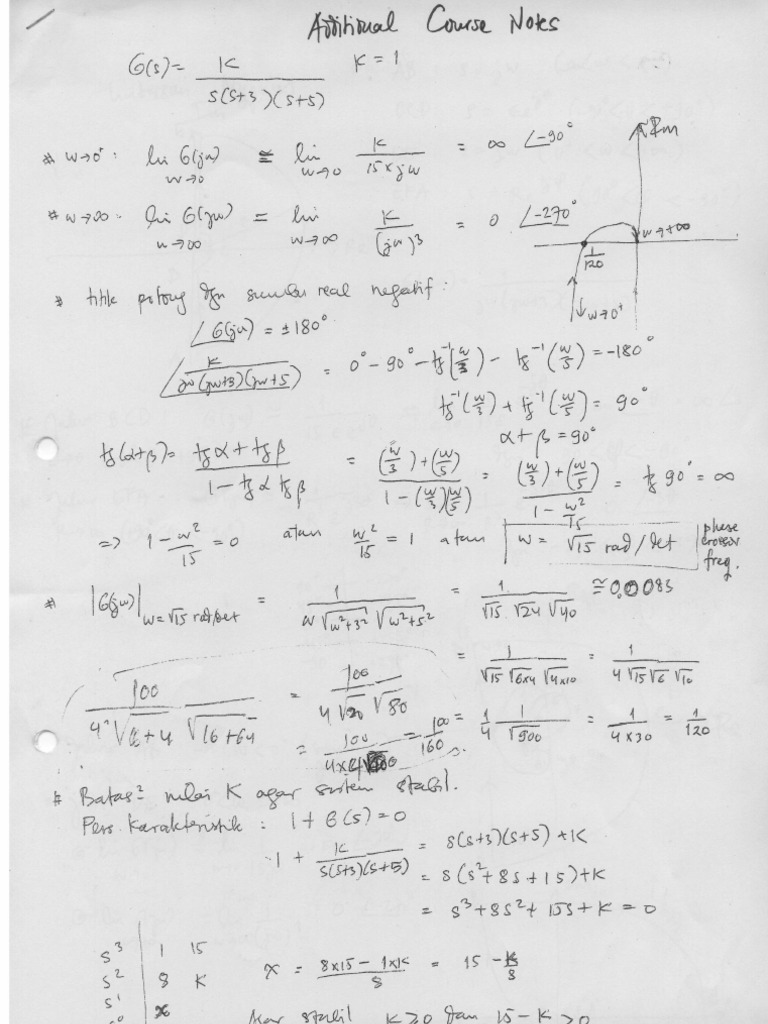 Additional Course Notes
G(s) = K / s(s+3)(s+5)   K = 1
# w→0⁺: lim w→0 G(jw) ≅ lim w→0 K / 15×jw = ∞ ∠-90°
# w→∞: lim w→∞ G(jw) = lim w→∞ K / (jw)³ = 0 ∠-270°
Im
w→+∞
1/120
w→0⁺
* titik potong dgn sumbu real negatif:
∠G(jw) = ±180°
∠ K / jw(jw+3)(jw+5) = 0° - 90° - tg⁻¹(w/3) - tg⁻¹(w/5) = -180°
tg⁻¹(w/3) + tg⁻¹(w/5) = 90°
α + β = 90°
tg(α+β) = tg α + tg β / 1 - tg α tg β = (w/3) + (w/5) / 1 - (w/3)(w/5) = (w/3) + (w/5) / 1 - w²/15 = tg 90° = ∞
=> 1 - w²/15 = 0 atau w²/15 = 1 atau w = √15 rad/det phase crossover freq.
* |G(jw)| w=√15 rad/det = 1 / w √w²+3² √w²+5² = 1 / √15 . √24 √40 ≅ 0,0083
= 1 / √15 √6x4 √4x10 = 1 / 4 √15 √6 √10
= 1/4 1/√900 = 1 / 4x30 = 1/120
100 / √16+64 = 100 / 4 √20 √80
= 100/160
# Batas² nilai K agar sistem stabil.
Pers. Karakteristik : 1 + G(s) = 0
1 + K / s(s+3)(s+5) = s(s+3)(s+5) + K
= s(s²+8s+15) + K
= s³ + 8s² + 15s + K = 0
s³ | 1 15
s² | 8 K
s¹ | x
s⁰
x = 8x15 - 1xK / 8 = 15 - K/8
Agar stabil K ≥ 0 dan 15 - K > 0